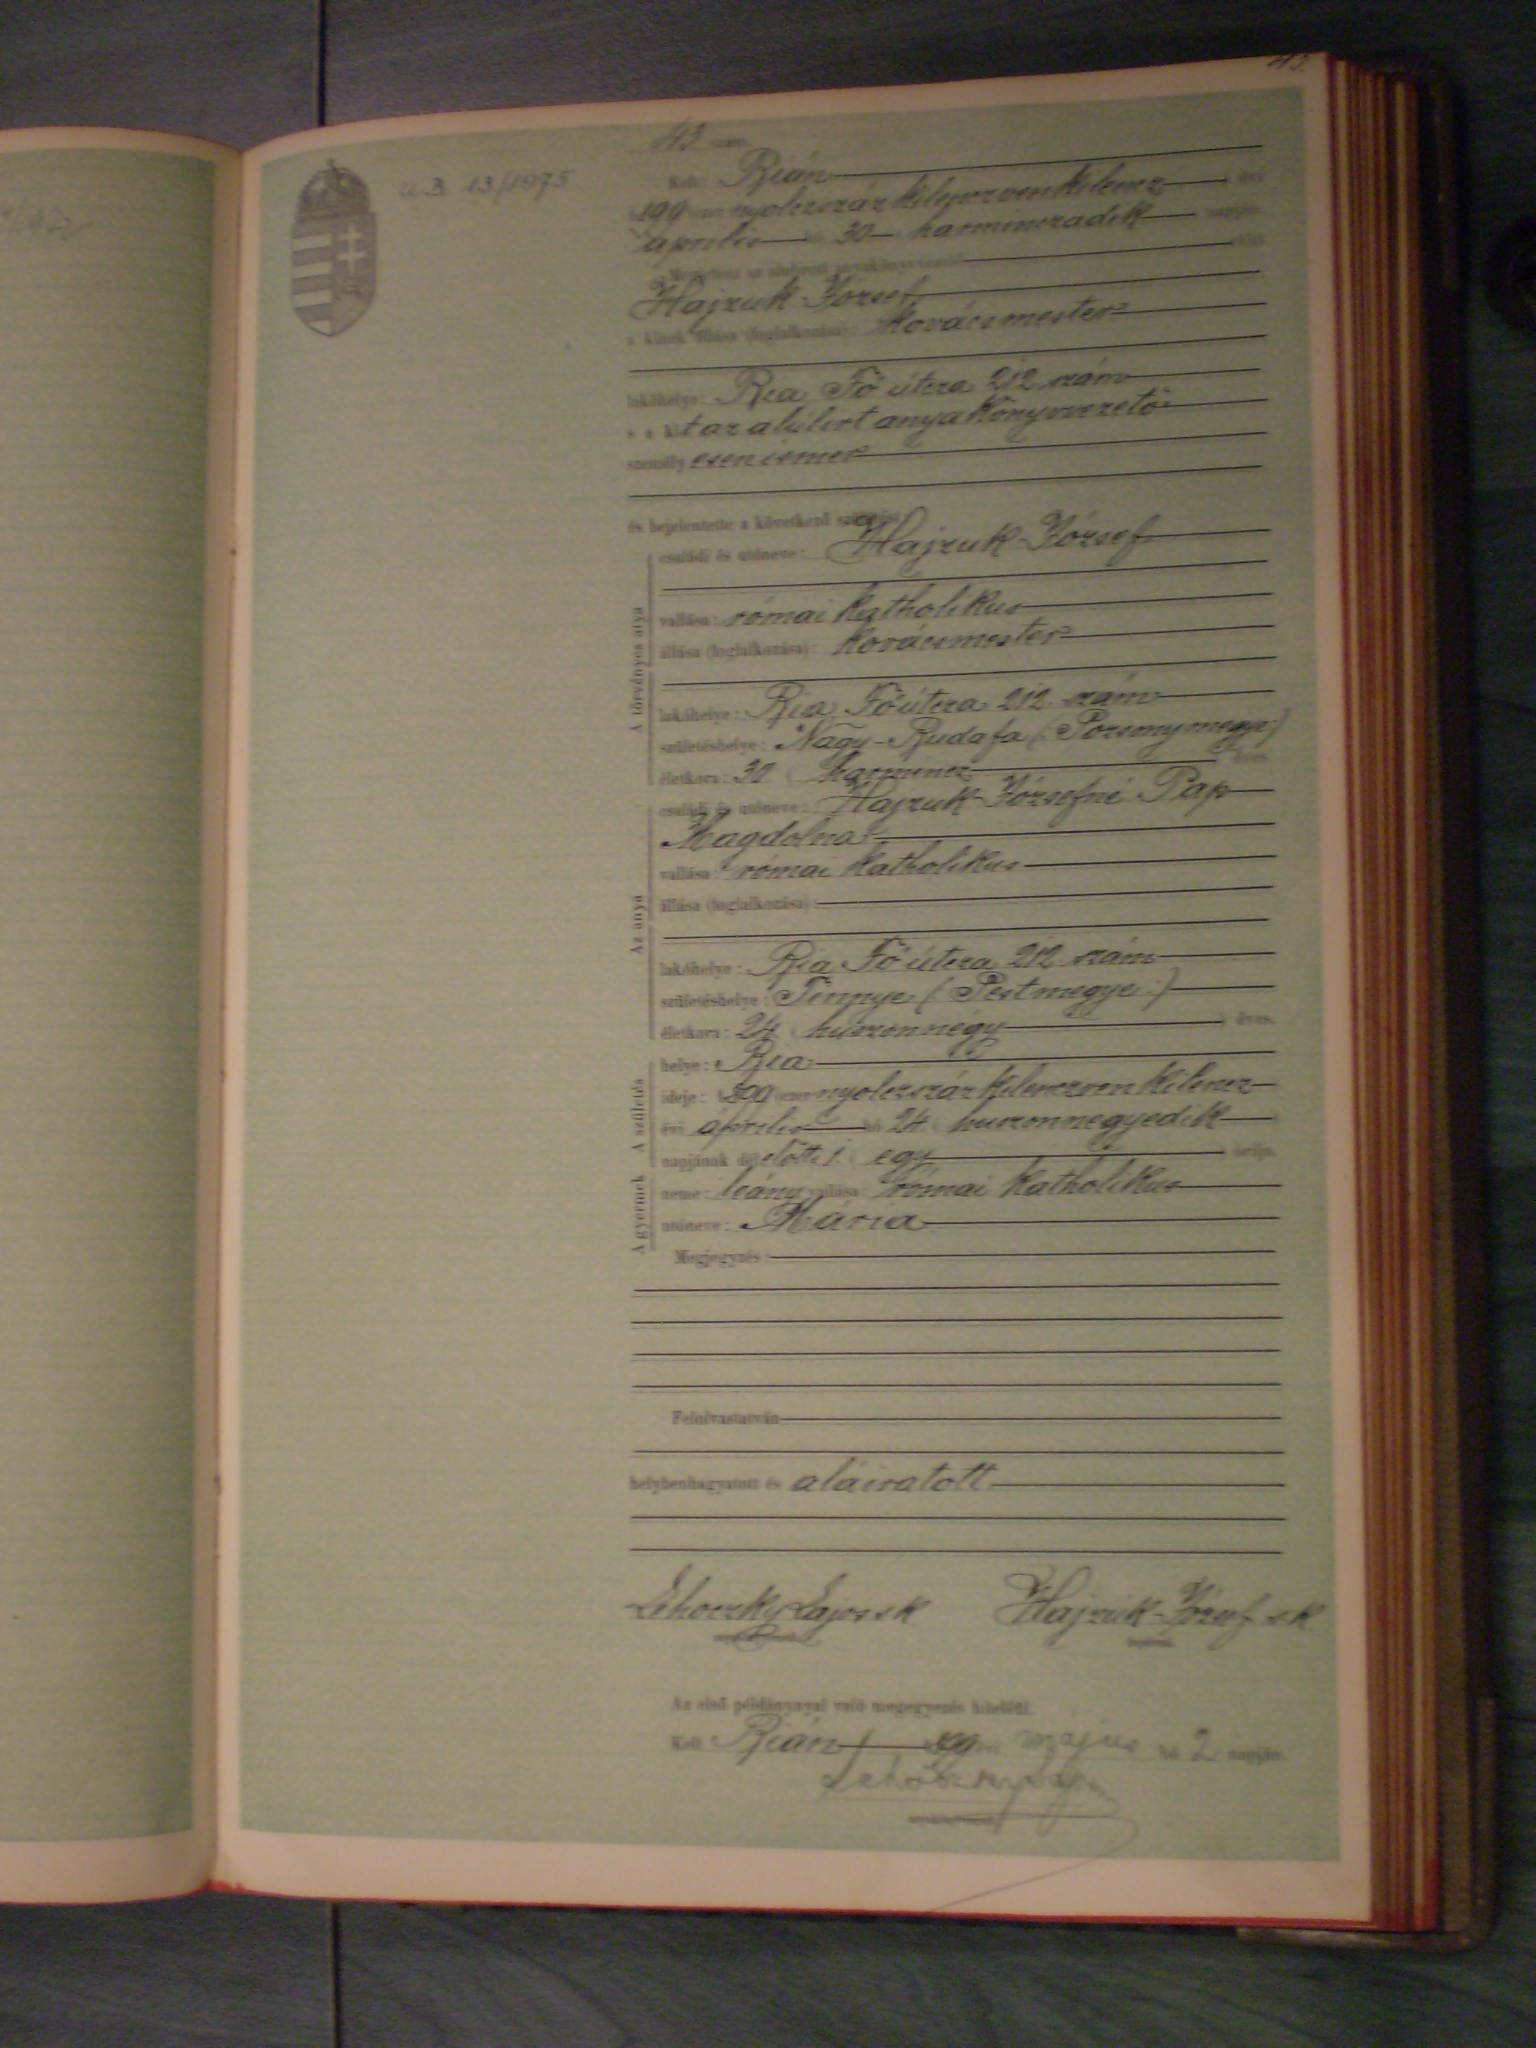 43
43 szám.
U. B. 13/1975
Kelt: Bián évi
899 ezer nyolczszáz kilenczven kilencz
április hó 30 harminczadik napján.
Megjelent az alulírott anyakönyvvezető előtt
Hajzuk József
a kinek állása (foglalkozása): kovácsmester
lakóhelye: Bia Fő útcza 212 szám
s a kit az alúlirt anyakönyvvezető
személyesen ismer
és bejelentette a következő születést:
A törvényes atya
családi és utóneve: Hajzuk József
vallása: római katholikus
állása (foglalkozása): kovácsmester
lakóhelye: Bia Fő útcza 212 szám
születéshelye: Nagy-Budafa (: Pozsonymegye :)
életkora: 30 harmincz éves
Az anya
családi és utóneve: Hajzuk Józsefné Pap
Magdolna
vallása: római katholikus
állása (foglalkozása):
lakóhelye: Bia Fő útcza 212 szám
születéshelye: Tinnye (: Pestmegye :)
életkora: 24 huszonnégy éves.
A születés
helye: Bia
ideje: 1899 ezer nyolczszáz kilenczven kilencz
évi április hó 24 huszonnegyedik
napjának délelőtti 1 egy órája.
A gyermek
neme: leány vallása: római katholikus
utóneve: Mária
Megjegyzés:
Felolvastatván
helybenhagyatott és aláiratott
Lehoczky Lajos sk Hajzuk József sk
anyakönyvvezető bejelentő
Az első példánynyal való megegyezés hiteléül.
Kelt Bián 899 évi május hó 2 napján.
Lehoczky Lajos
anyakönyvvezető